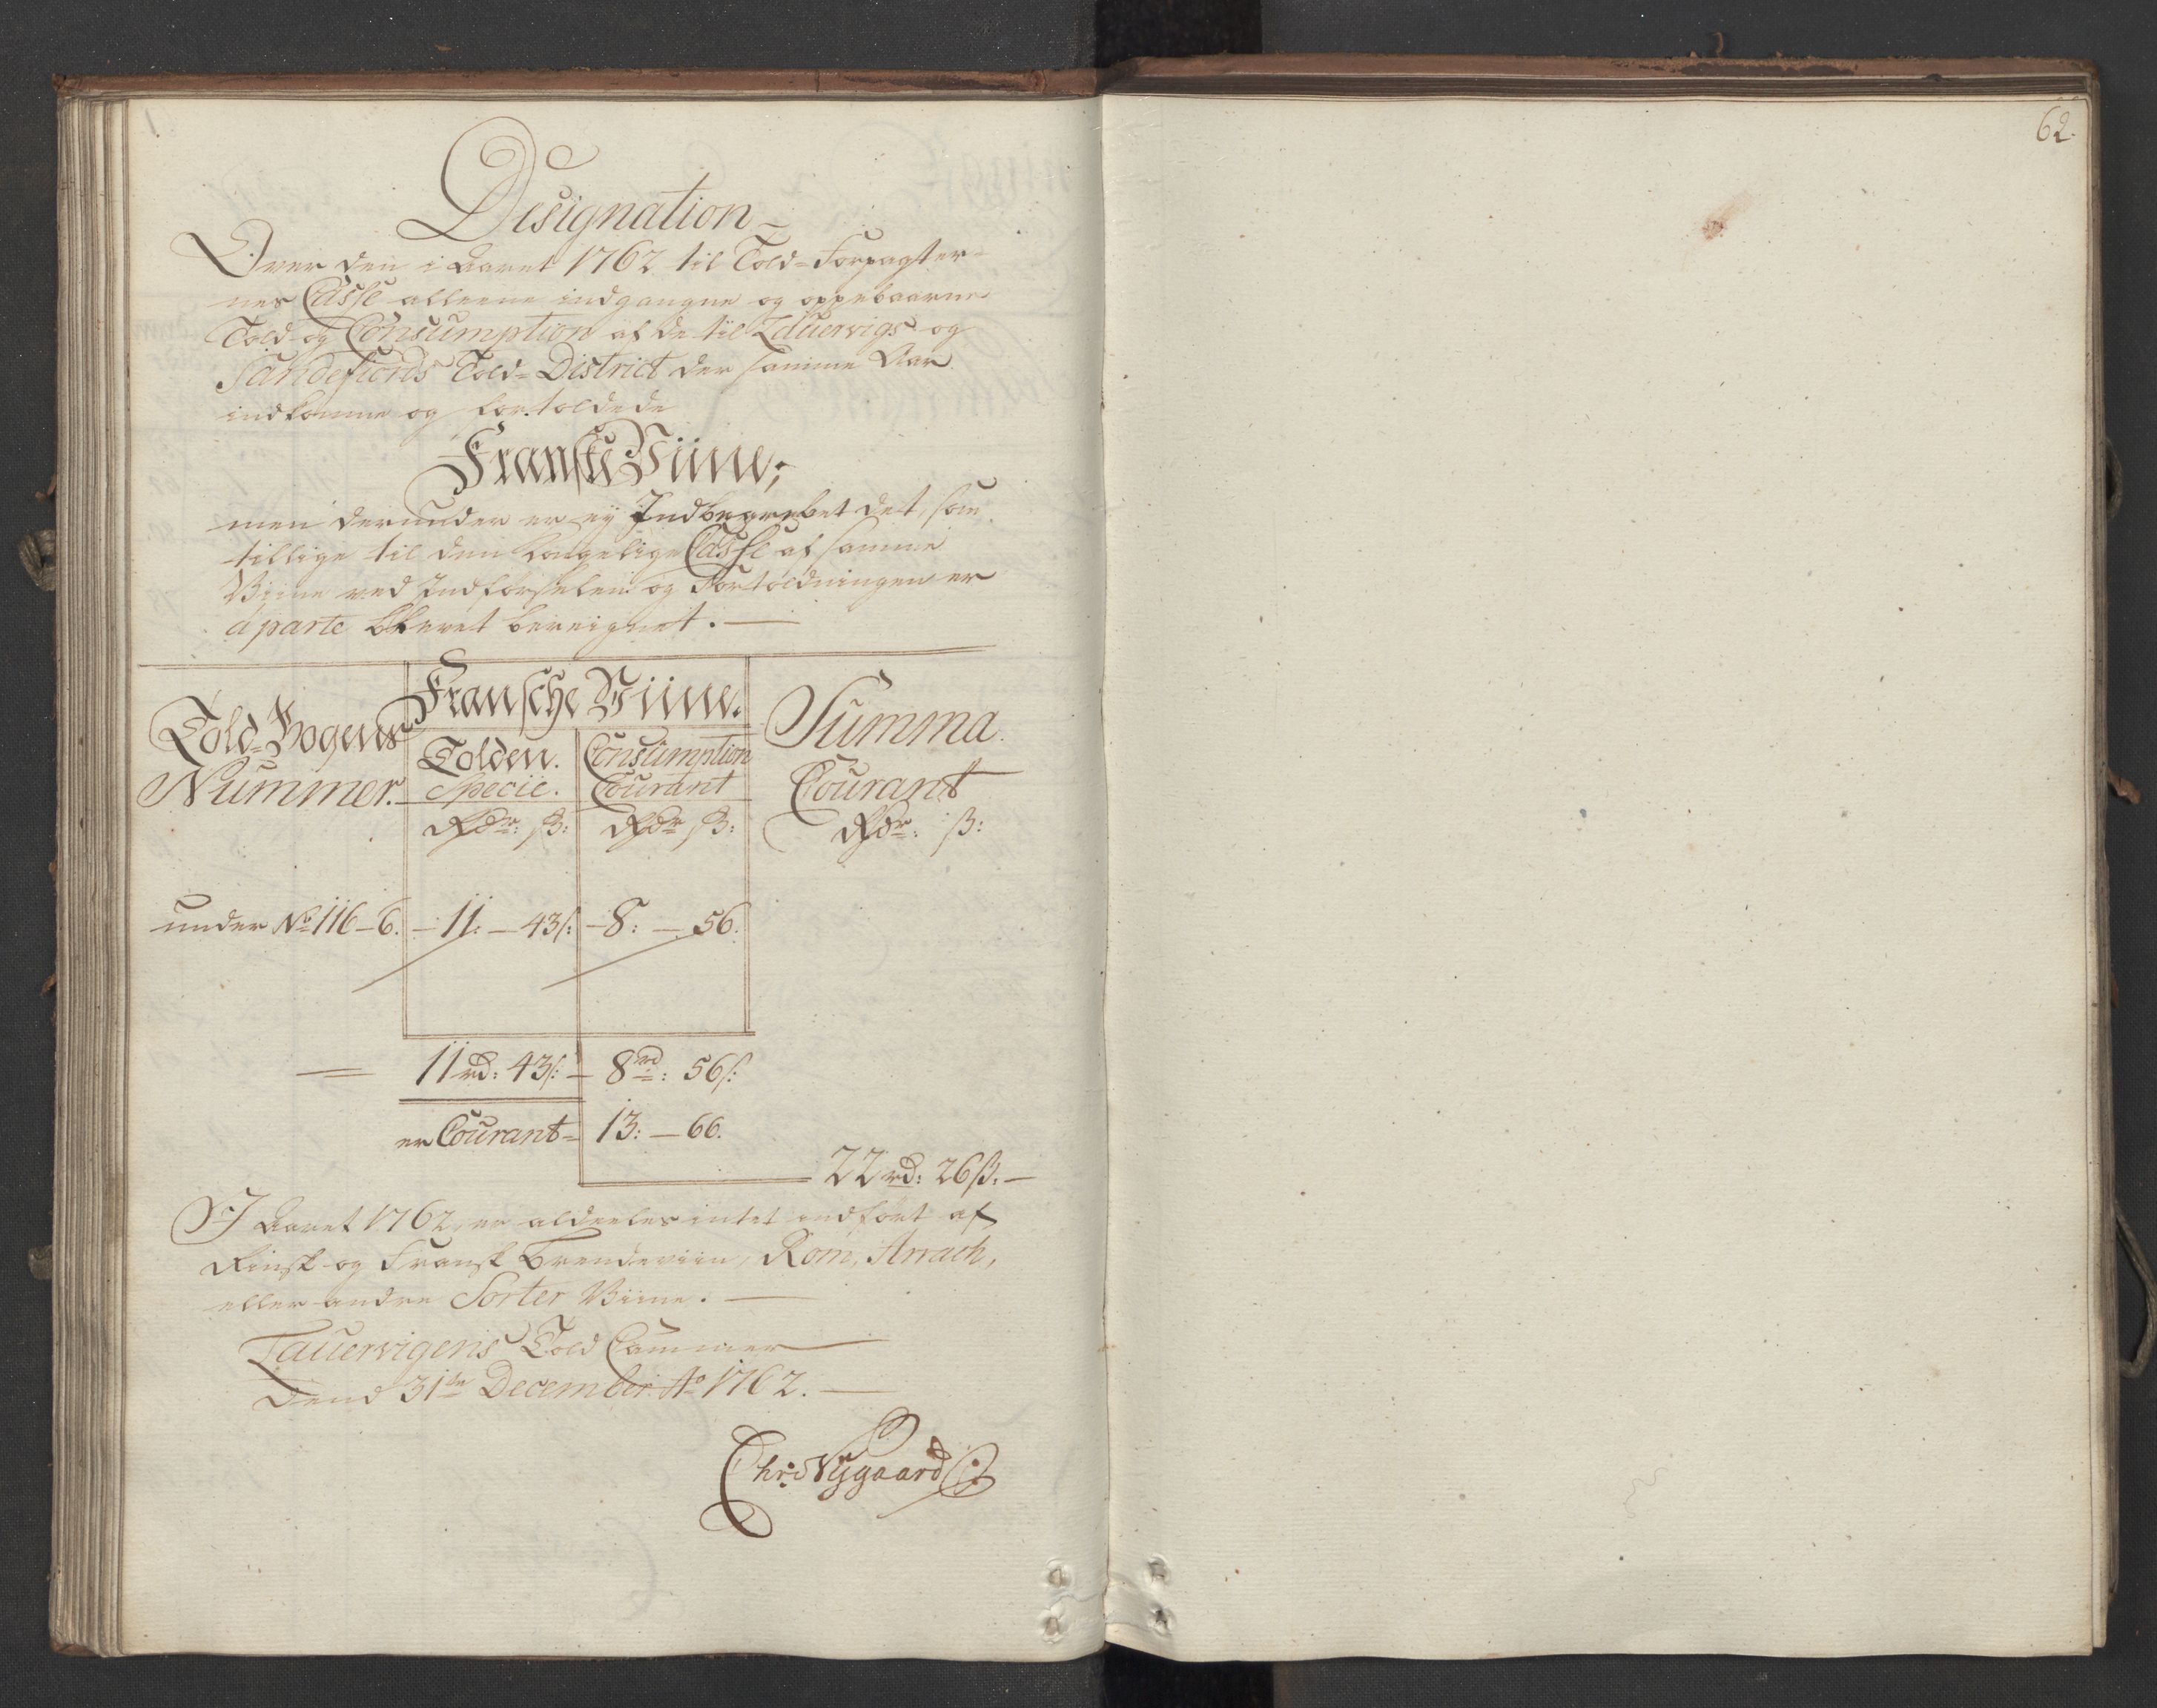 Designation
Over den i Aaret 1762 til Told-Forpagter-
nes Casse alleene indgangne og oppebaarne
Told og Consumption af de til Lauervigs og
Sandefiords Told-District der samme Aar
indkomne og fortoldede
Franske Viine;
men derunder er ey Indbegrebet det, som
tillige til den Kongelige Casse af samme
Viine ved Indførselen og Fortoldningen er
á parte blevet bereignet. —
Told-Bogens
Nummer.
Fransche Viine.
Tolden. Consumption
Specie. Courant
Rdr: ß: Rdr ß:
Summa
Courant
Rdr: ß:
under No 116-6. - 11: - 43ß: - 8: - 56.
11 rd: 43ß: - 8 rd: 56ß:
er Courant = 13: - 66.
22 rd: 26ß. -
I Aaret 1762, er aldeeles intet indført af
Rinsk og Fransk Brendeviin, Rom, Arrach,
eller andre Sorter Viine. —
Lauervigens Told Cammer
Dend 31de December Ao 1762. —
Chr: Nygaard
62.